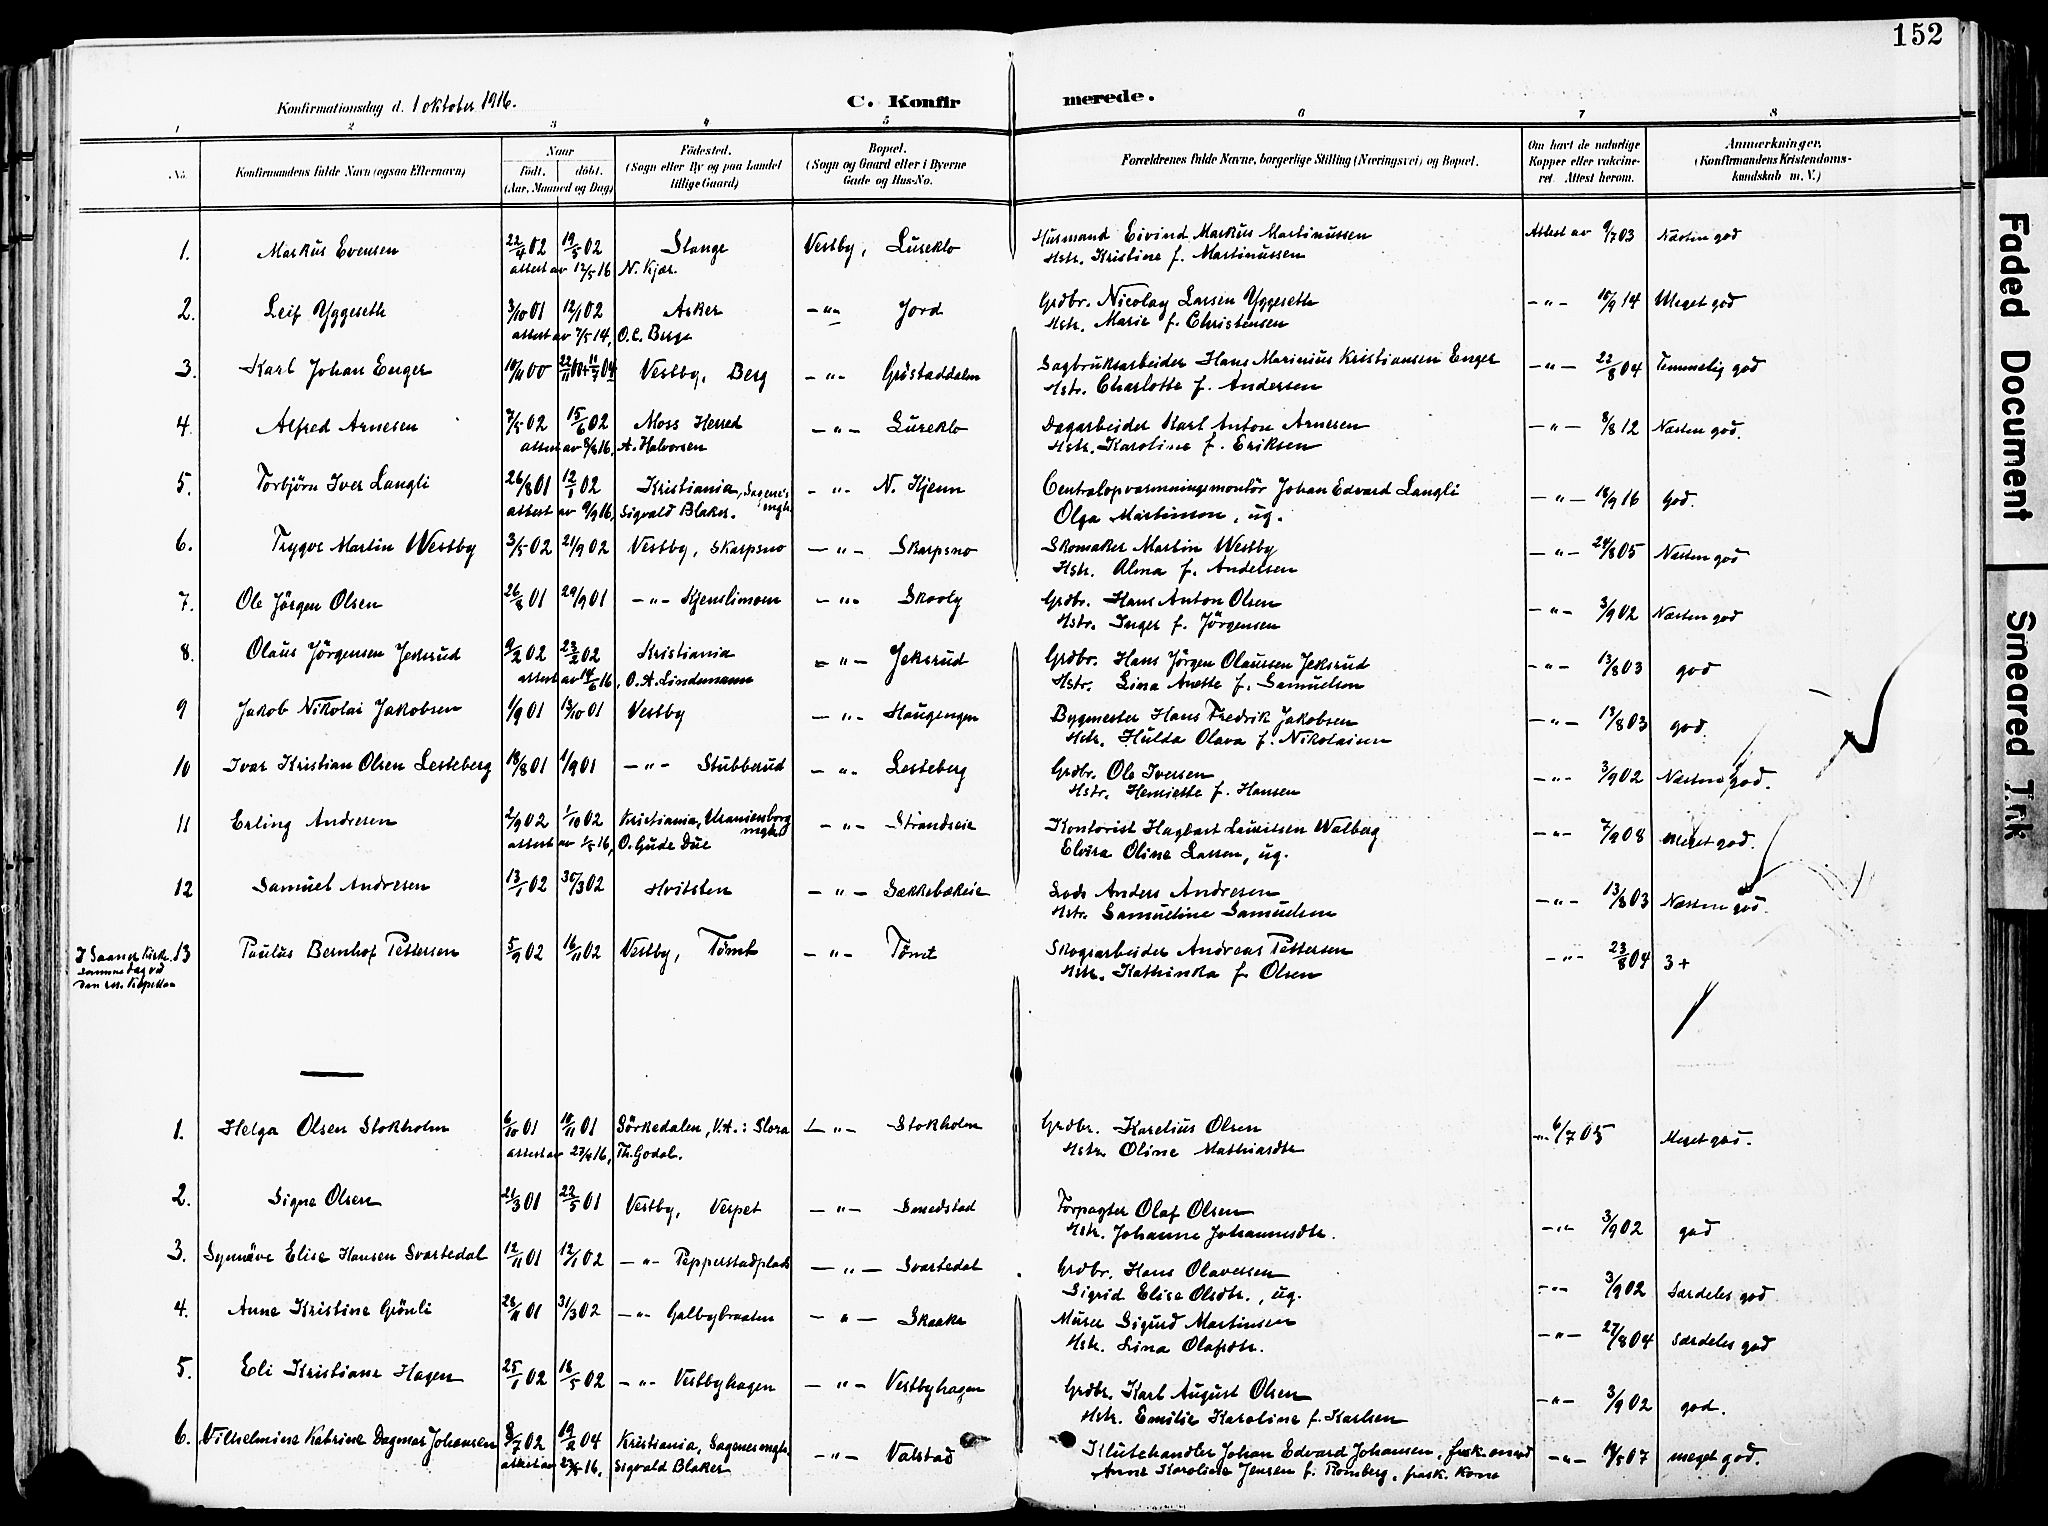 152
Konfirmationsdag d. 1 oktober 1916.
C. Konfirmerede.
1 2 3 4 5 6 7 8
No. Konfirmandens fulde Navn (ogsaa Efternavn) Naar Født. døbt. (Aar, Maaned og Dag) Fødested. (Sogn eller By og paa Landet tillige Gaard) Bopæl. (Sogn og Gaard eller i Byerne Gade og Hus-No. Forældrenes fulde Navne, borgerlige Stilling (Næringsvei) og Bopæl. Om havt de naturlige Kopper eller vakcineret. Attest herom. Anmærkninger. (Konfirmandens Kristendomskundskab m. V.)
1. Markus Evensen 22/4 02 19/5 02 Stange Vestby, Lureklo Husmand Eivind Markus Martinussen Attest av 9/7 03 Næsten god
attest av 12/5 16 N. Kjær. Hstr. Kristine f. Martinussen
2. Leif Yggeseth 3/10 01 12/1 02 Asker — " — Jord Grdbr. Nicolay Larsen Yggeseth — " — 10/9 14 Meget god
attest av 7/5 14, O.C. Berge Hstr. Marie f. Christensen
3. Karl Johan Enger 10/11 00 Vestby, Berg — " — Gröstaddalen Sagbruksarbeider Hans Marinius Kristiansen Enger — " — 22/8 04 Temmelig god
Hstr. Charlotte f. Andersen
4. Alfred Arnesen 7/5 02 15/6 02 Moss Herred — " — Lureklo Dagarbeider Karl Anton Arnesen — " — 8/8 12 Næsten god.
attest av 8/8 16, A. Halvorsen Hstr. Karoline f. Eriksen
5. Torbjörn Iver Langli 26/8 01 12/1 02 Kristiania, Sagenes mgh. — " — N. Kjenn Centralopvarmningsmontör Johan Edvard Langli — " — 18/9 16 God.
attest av 9/9 16, Sigvald Blaker. Olga Martinson, ug.
6. Trygve Martin Westby 3/5 02 21/9 02 Vestby, Skarpsno — " — Skarpsno Skomaker Martin Westby — " — 24/8 05 Næsten god
Hstr. Alma f. Andersen
7. Ole Jörgen Olsen 26/8 01 29/9 01 — " — Kjenslimoen — " — Skovly Grdbr. Hans Anton Olsen — " — 3/9 02 Næsten god
Hstr. Inger f. Jörgensen
8. Olaus Jörgensen Jeksrud 9/2 02 23/2 02 Kristiania — " — Jeksrud Grdbr. Hans Jörgen Olaussen Jeksrud — " — 13/8 03 god
attest av 14/6 16, O.A. Lindemann Hstr. Lina Anette f. Samuelsen
9 Jakob Nikolai Jakobsen 1/9 01 13/10 01 Vestby — " — Haugengen Bygmester Hans Fredrik Jakobsen — " — 13/8 03 god.
Hstr. Hulda Olava f. Nikolaisen
10 Ivar Kristian Olsen Lesteberg 18/8 01 1/9 01 — " — Stubberud — " — Lesteberg Grdbr. Ole Iversen — " — 3/9 02 Næsten god.
Hstr. Henriette f. Hansen
11 Erling Andresen 2/9 02 1/10 02 Kristiania, Uranienborg mgh. — " — Strandseie Kontorist Hagbart Lauritsen Walberg — " — 7/9 08 Meget god.
attest av 1/5 16, O. Gude Due Elvira Oline Larsen, ug.
12 Samuel Andresen 13/1 02 30/3 02 Hvitsten — " — Sækkebækeie Lods Anders Andresen — " — 13/8 03 Næsten god.
Hstr. Samueline Samuelsen
I Saaner Kirke samme dag ved den res. kapellan
13 Paulus Bernhof Pettersen 5/9 02 16/11 02 Vestby, Tømt — " — Tømt Skogsarbeider Andreas Pettersen — " — 23/8 04 3+
Hstr. Kathinka f. Olsen
1. Helga Olsen Stokholm 6/10 01 10/11 01 Sörkedalen, V.A.: Slora — " — Stokholm Grdbr. Karelius Olsen — " — 6/7 05 Meget god.
attest av 27/4 16, Th. Godal. Hstr. Oline Mathiasdtr
2. Signe Olsen 21/3 01 22/5 01 Vestby, Verpet — " — Smedstad Forpagter Olaf Olsen — " — 3/9 02 god
Hstr. Johanne Johannesdtr.
3. Synnöve Elise Hansen Svartedal 12/11 01 12/1 02 — " — Pepperstadplads — " — Svartedal Grdbr. Hans Olaversen — " — 3/9 02 Særdeles god
Sigrid Elise Olsdtr., ug.
4. Anne Kristine Grönli 28/11 01 31/3 02 — " — Galbybraaten — " — Skaake Murer Sigurd Martinsen — " — 27/8 04 Særdeles god
Hstr. Lina Olafsdtr.
5. Eli Kristiane Hagen 25/1 02 18/5 02 — " — Vestbyhagen — " — Vestbyhagen Grdbr. Karl August Olsen — " — 3/9 02 god.
Hstr. Emilie Karoline f. Karlsen
6. Vilhelmine Katrine Dagmar Johansen 8/7 02 19/2 04 Kristiania, Sagenes mgh. — " — Valstad Klutehandler Johan Edvard Johansen, frask. mand — " — 14/5 07 meget god.
attest av 16, Sigvald Blaker Anne Karoline Jensen f. Romberg, frask. Kone
Faded Document
Smeared Ink